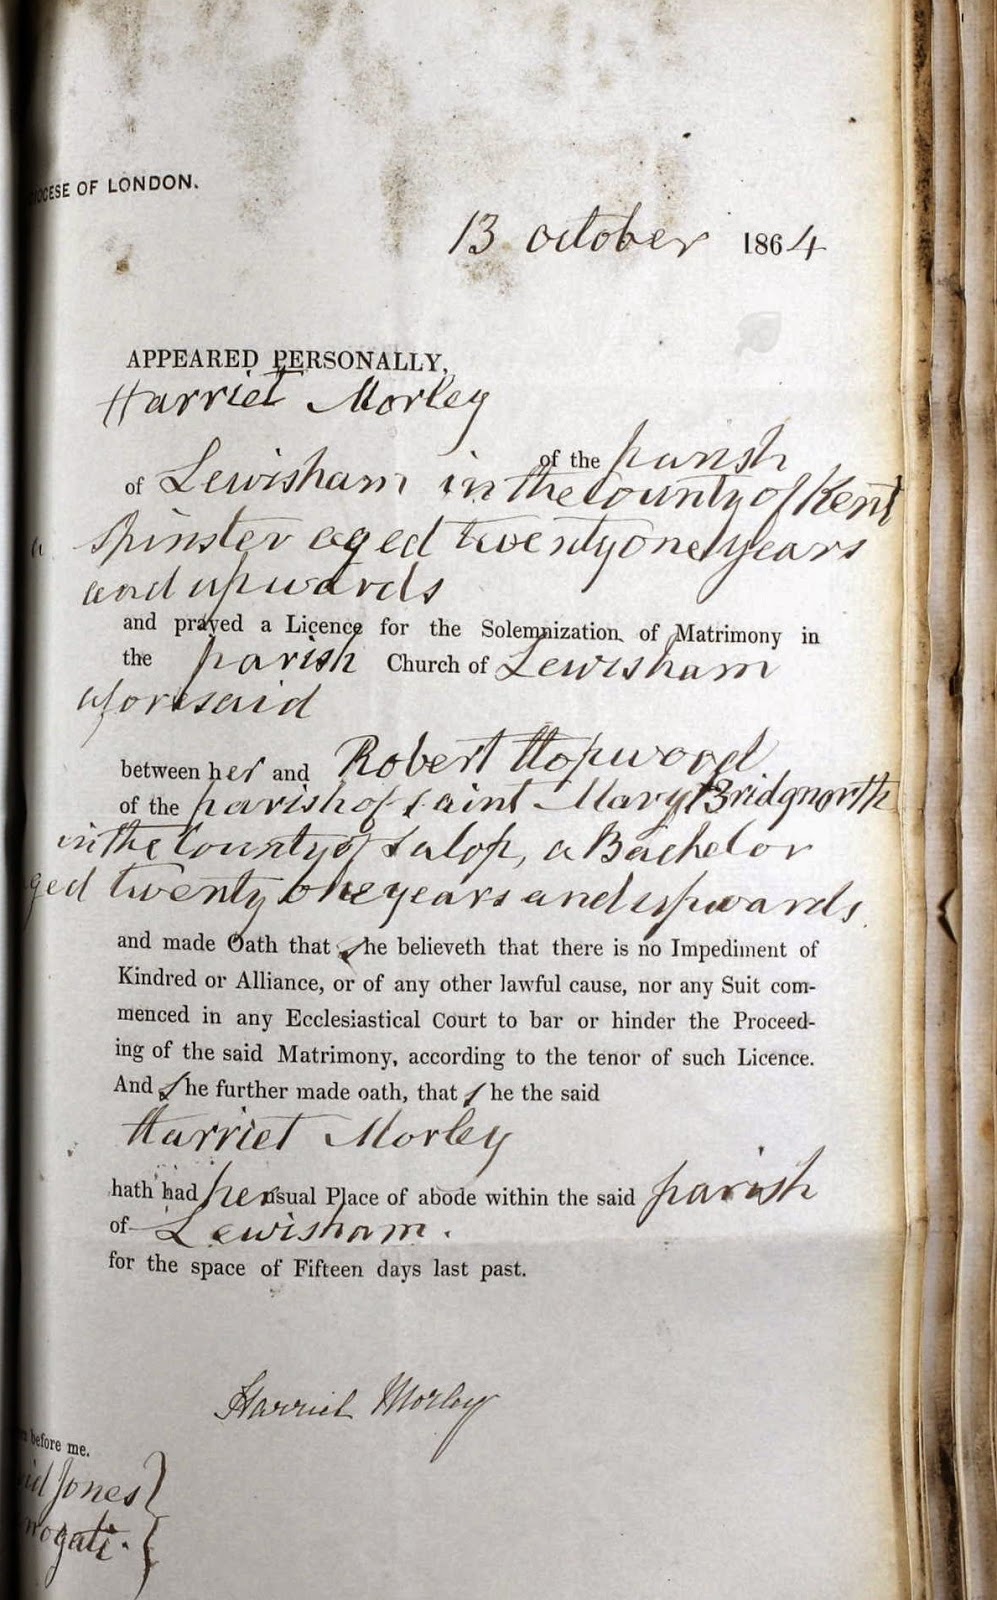 DIOCESE OF LONDON.
13 October 1864
APPEARED PERSONALLY,
Harriet Morley
of the parish
of Lewisham in the County of Kent
a Spinster aged twenty one years
and upwards
and prayed a Licence for the Solemnization of Matrimony in
the parish Church of Lewisham
aforesaid
between her and Robert Hopwood
of the parish of Saint Mary Bridgnorth
in the County of Salop, a Bachelor
aged twenty one years and upwards
and made Oath that she believeth that there is no Impediment of
Kindred or Alliance, or of any other lawful cause, nor any Suit com-
menced in any Ecclesiastical Court to bar or hinder the Proceed-
ing of the said Matrimony, according to the tenor of such Licence.
And she further made oath, that she the said
Harriet Morley
hath had her usual Place of abode within the said parish
of Lewisham.
for the space of Fifteen days last past.
Harriet Morley
before me.
Jones